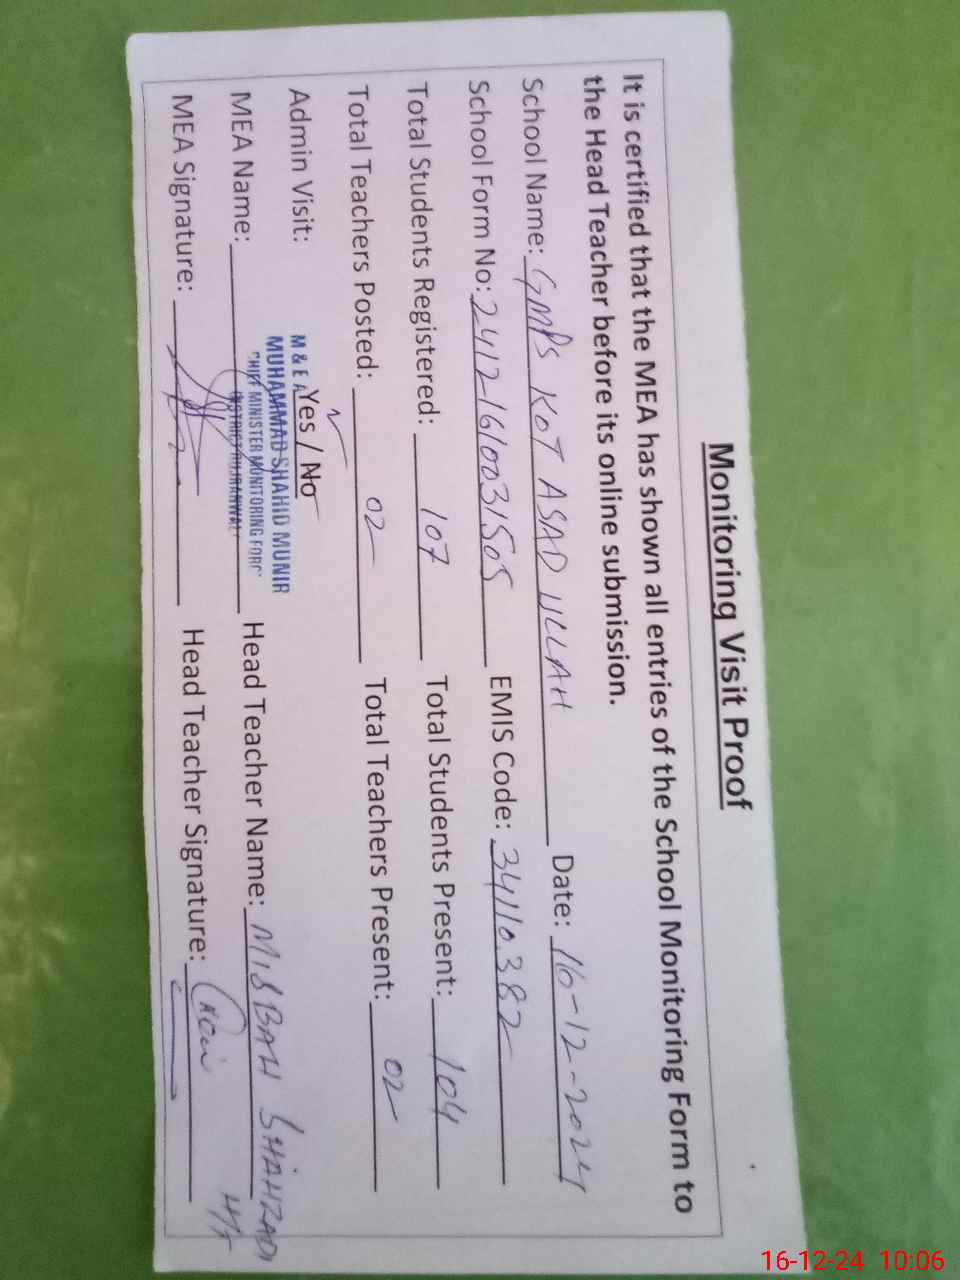 Monitoring Visit Proof
It is certified that the MEA has shown all entries of the School Monitoring Form to
the Head Teacher before its online submission.
School Name: GMPS KOT ASAD ULLAH Date: 16-12-2024
School Form No: 2412-1610031505 EMIS Code: 34110382
Total Students Registered: 107 Total Students Present: 104
Total Teachers Posted: 02 Total Teachers Present: 02
Admin Visit: Yes / No
M & E A
MUHAMMAD SHAHID MUNIR
CHIEF MINISTER MONITORING FORC
DISTRICT GUJRANWALA
MEA Name: Head Teacher Name: MISBAH SHAHZADI
H/T
MEA Signature: Head Teacher Signature:
16-12-24 10:06